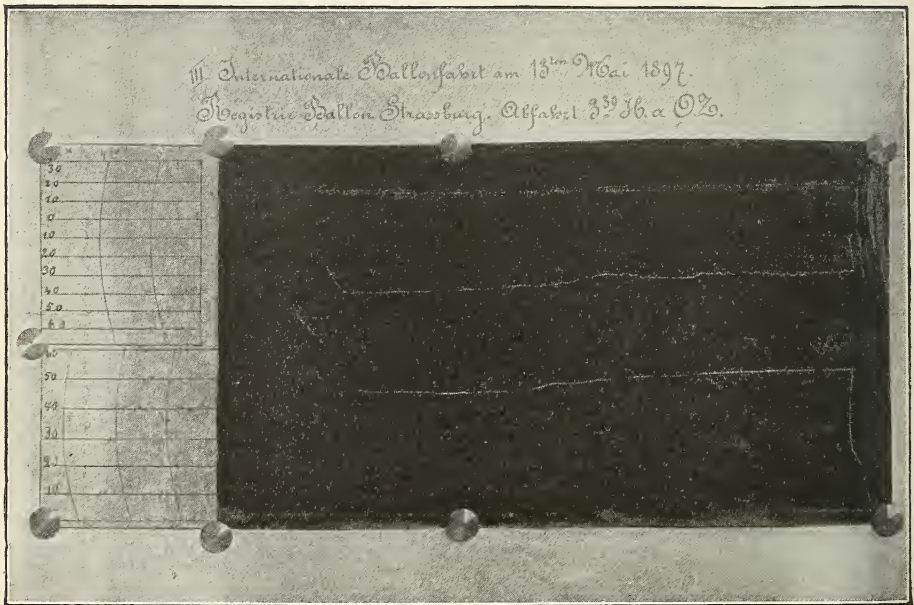 III. Internationale Ballonfahrt am 13ten Mai 1897.
Registrir-Ballon Strassburg. Abfahrt 3 39 H. a OZ.
30
20
10
0
10
20
30
40
50
60
60
50
40
30
20
10